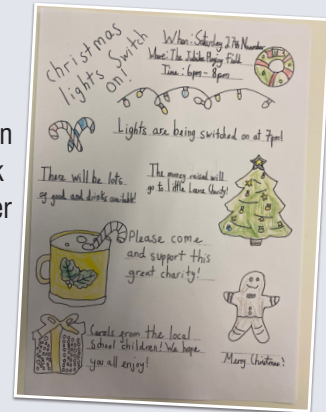 christmas
lights Switch
on!
When: Saturday 27th November
Where: The Jubilee Playing Field
Time: 6pm - 8pm
Lights are being switched on at 7pm!
There will be lots
of food and drinks available!
The money raised will
go to little Lane Charity!
Please come
and support this
great charity!
Carols from the local
School children! We hope
you all enjoy!
Merry Christmas!
n
k
er